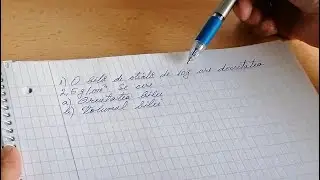 1) O bilă de sticlă de 10g are densitatea
2,5 g/cm³ Se cere
a) Greutatea bilei
b) Volumul bilei